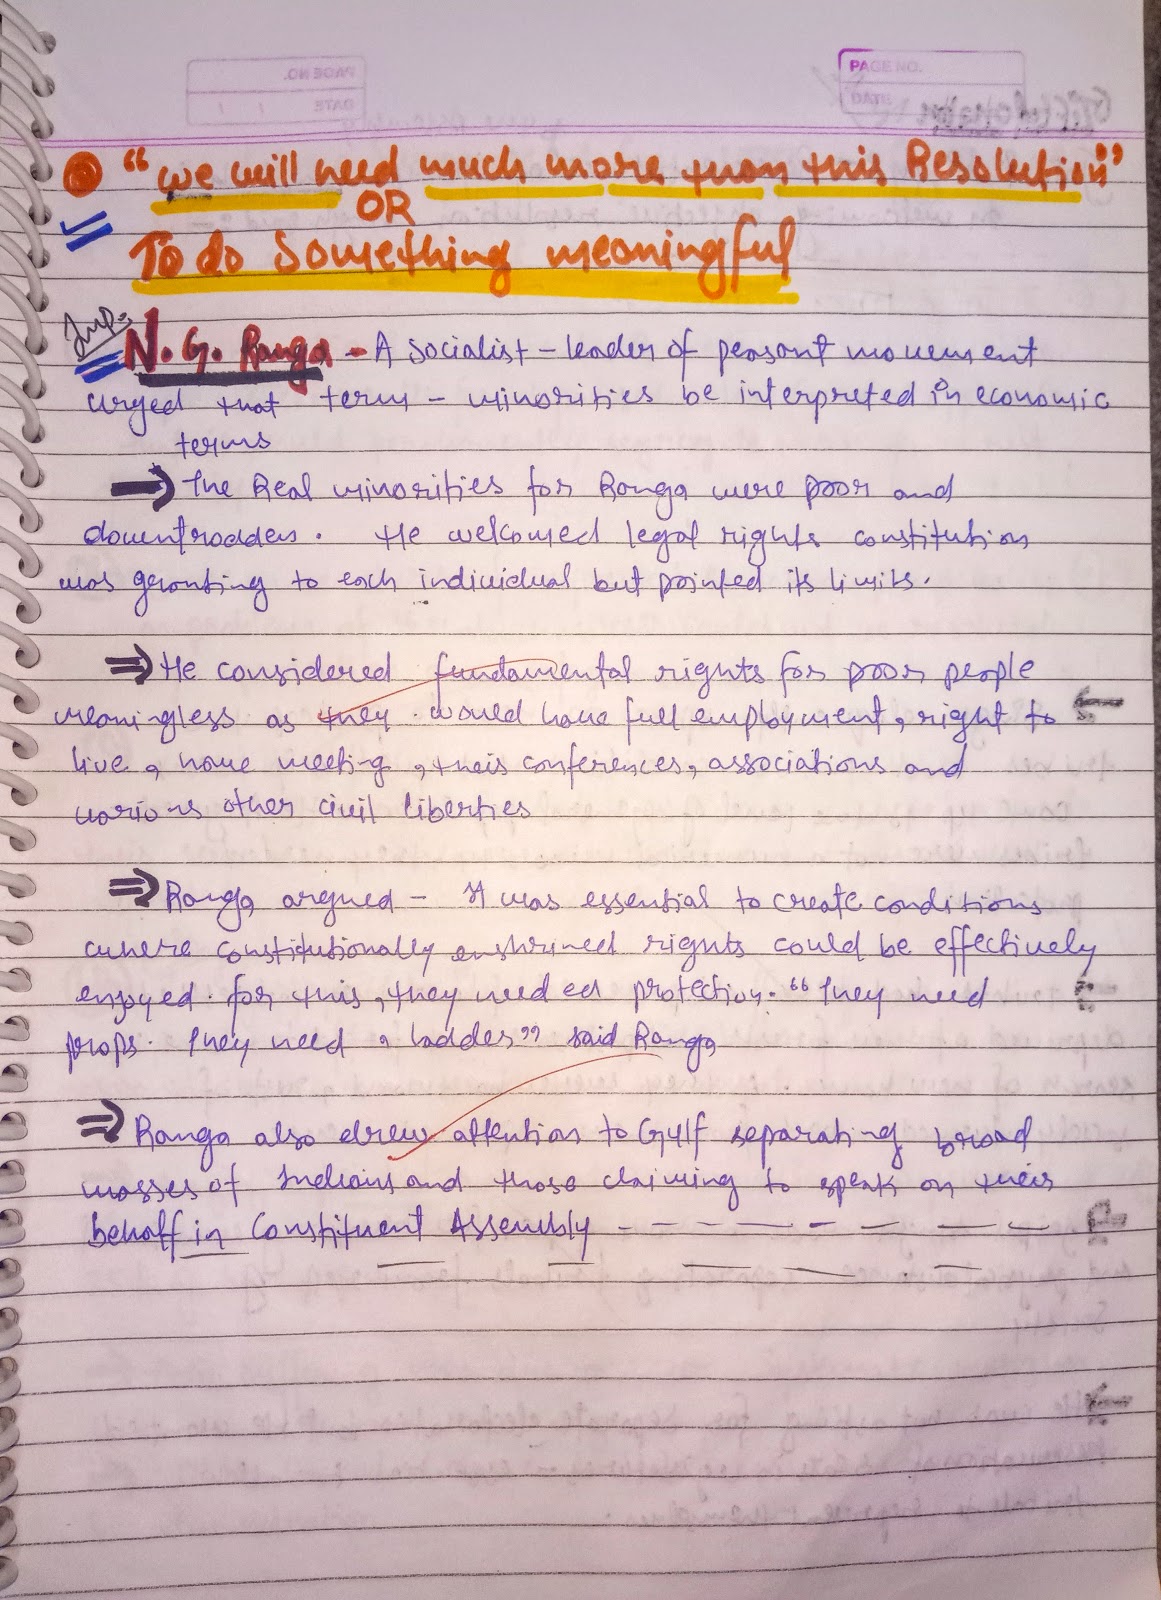 PAGE NO.
DATE
"we will need much more than this Resolution"
OR
To do Something meaningful
Imp.
N. G. Ranga - A socialist - leader of peasant movement
urged that term - minorities be interpreted in economic
terms
⇒ The Real minorities for Ranga were poor and
downtrodden. He welcomed legal rights constitution
was granting to each individual but pointed its limits.
⇒ He considered fundamental rights for poor people
meaningless as they would have full employment, right to
live, have meeting, their conferences, associations and
various other civil liberties
⇒ Ranga argued - It was essential to create conditions
where constitutionally enshrined rights could be effectively
enjoyed. for this, they needed protection. "They need
props. They need a ladder" said Ranga
⇒ Ranga also drew attention to Gulf separating broad
masses of Indians and those claiming to speak on their
behalf in Constituent Assembly